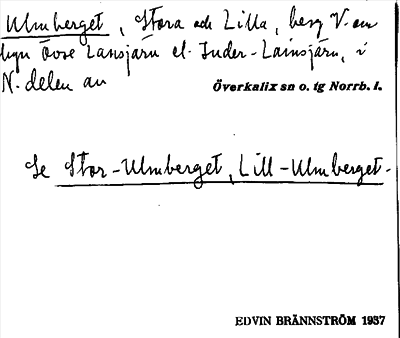 Ulmberget, Stora och Lilla, berg V. om
byn Övre Lansjärv el. Inder-Lainsjärv, i
N. delen av Överkalix sn o. tg Norrb. l.
Se Stor-Ulmberget, Lill-Ulmberget.
EDVIN BRÄNNSTRÖM 1937